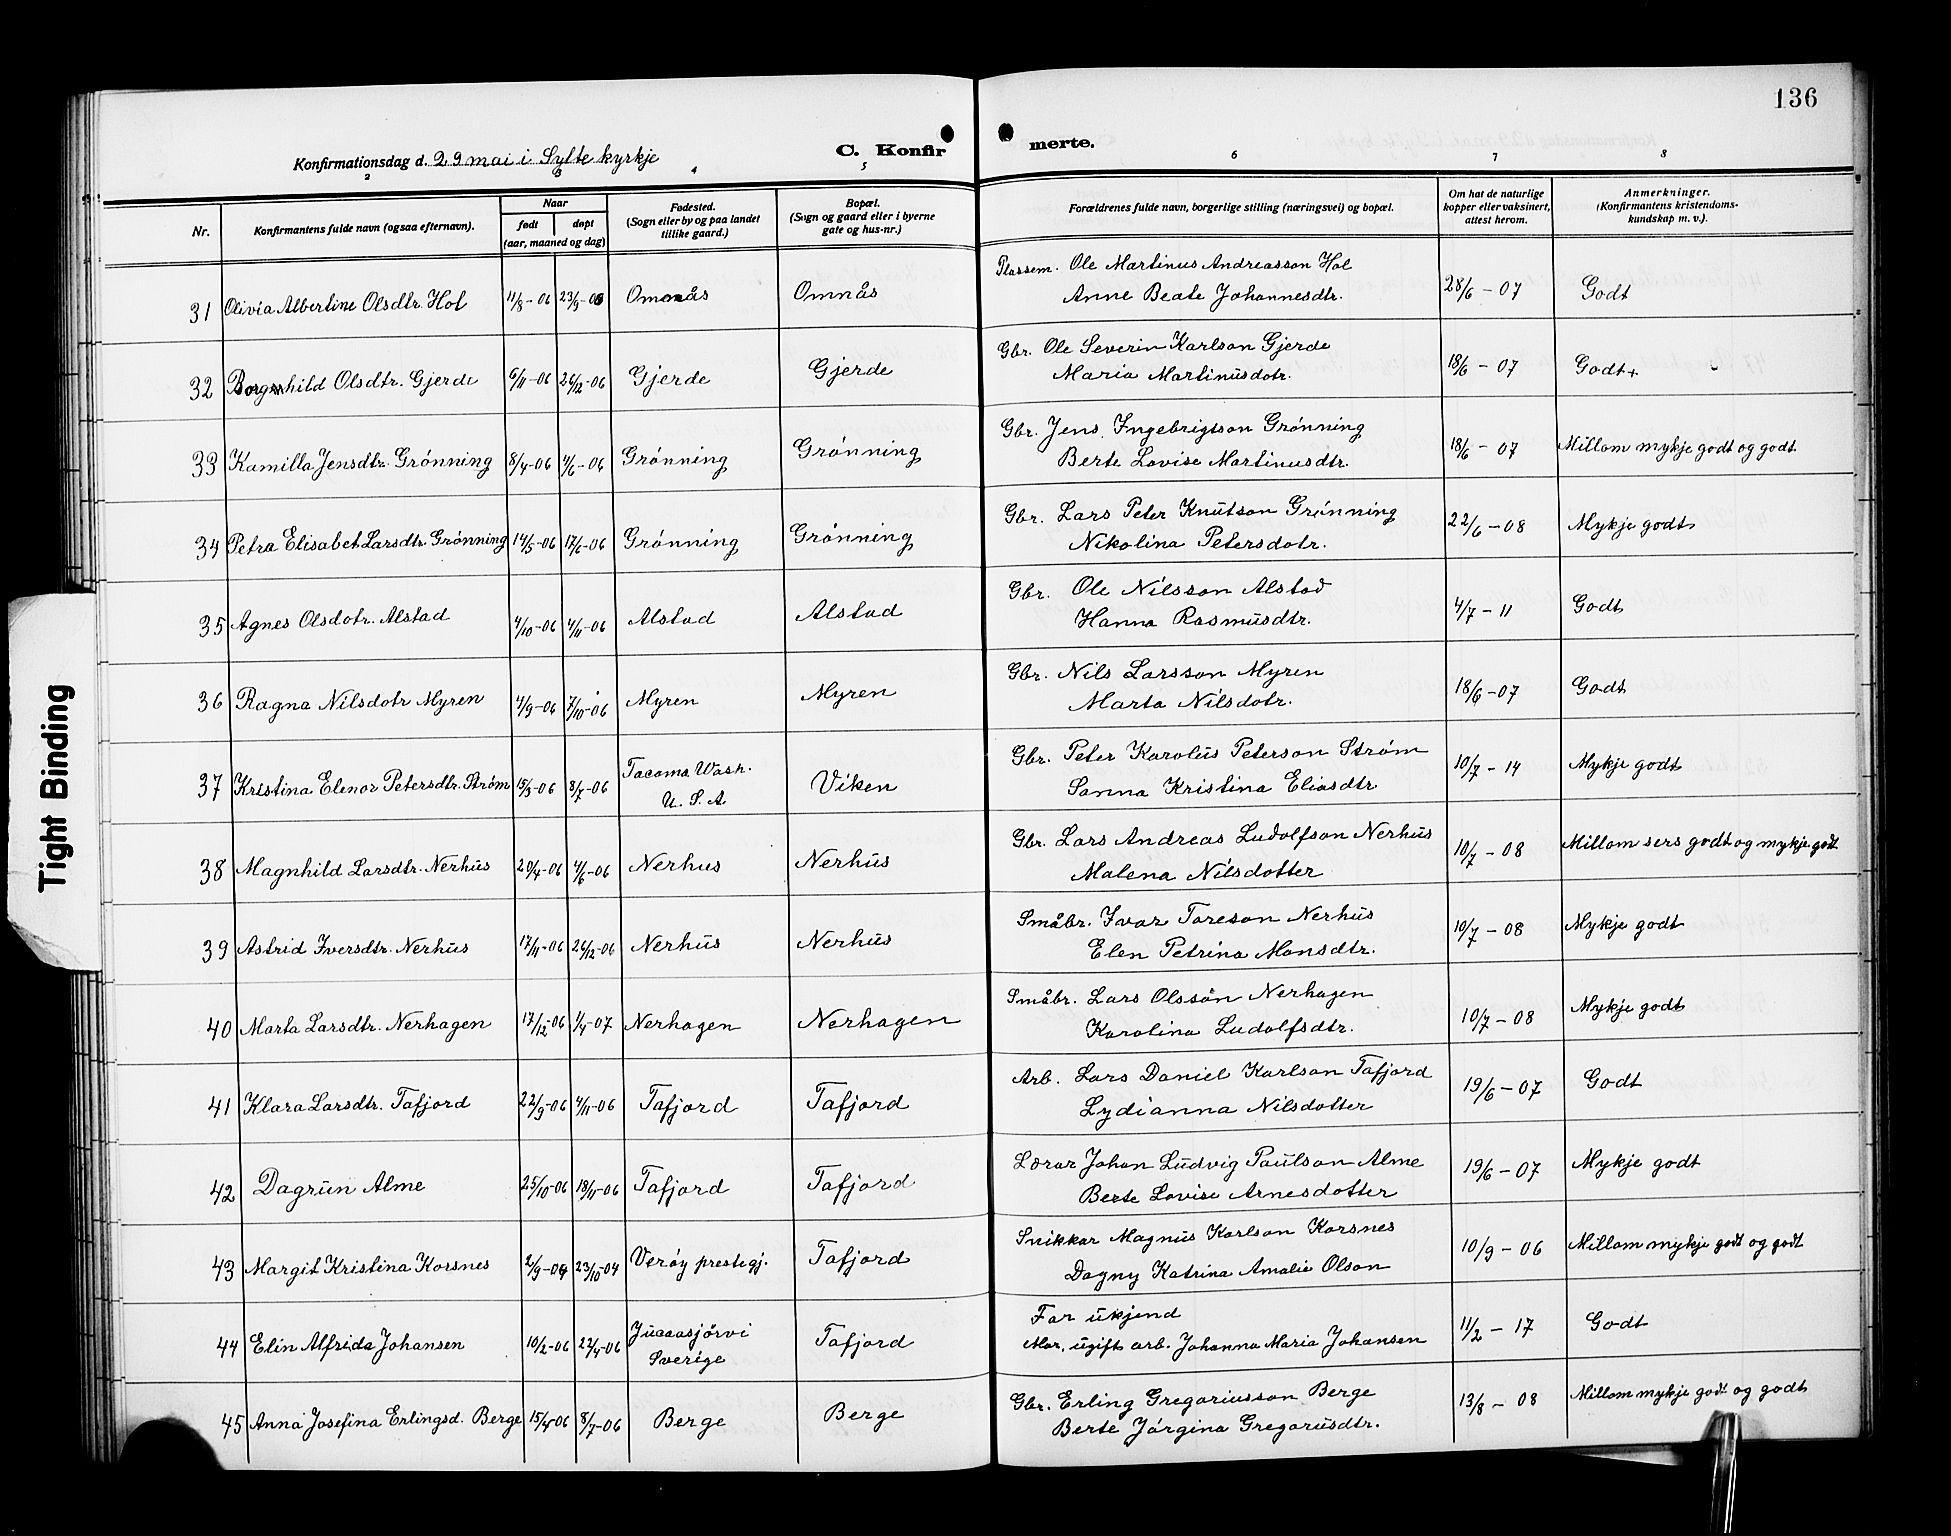 136
Konfirmationsdag d. 29 mai i Sylte kyrkje
C. Konfir
merte.
2 3 4 5 6 7 8
Nr.
Konfirmantens fulde navn (ogsaa efternavn).
Naar
født
døpt
(aar, maaned og dag)
Fødested.
(Sogn eller by og paa landet
tillike gaard.)
Bopæl.
(Sogn og gaard eller i byerne
gate og hus-nr.)
Forældrenes fulde navn, borgerlige stilling (næringsvei) og bopæl.
Om hat de naturlige
kopper eller vaksinert,
attest herom.
Anmerkninger.
(Konfirmantens kristendoms-
kundskap m. v.).
31 Olivia Albertine Olsdtr. Hol 11/8-06 23/9-06 Omnås Omnås Plassem. Ole Martinus Andreasson Hol 28/6-07 Godt
Anne Beate Johannesdtr.
32 Borgnhild Olsdtr. Gjerde 6/11-06 26/12-06 Gjerde Gjerde Gbr. Ole Severin Karlson Gjerde 18/6-07 Godt+
Maria Martinusdotr.
33 Kamilla Jensdtr. Grónning 8/4-06 4/6-06 Grónning Grónning Gbr. Jens Ingebrigtson Grónning 18/6-07 Millom mykje godt og godt.
Berte Lovise Martinusdtr.
34 Petra Elisabet Larsdtr. Grónning 14/5-06 17/6-06 Grónning Grónning Gbr. Lars Peter Knutson Grónning 22/6-08 Mykje godt
Nikolina Petersdotr.
35 Agnes Olsdotr. Alstad 4/10-06 4/11-06 Alstad Alstad Gbr. Ole Nilsson Alstad 4/7-11 Godt
Hanna Rasmusdtr.
36 Ragna Nilsdotr Myren 4/9-06 7/10-06 Myren Myren Gbr. Nils Larsson Myren 18/6-07 Godt
Marta Nilsdotr.
37 Kristina Elenor Petersdtr. Stróm 15/3-06 8/7-06 Tacoma Wash. Viken Gbr. Peter Karolus Peterson Stróm 10/7-14 Mykje godt
U. S. A Sanna Kristina Eliasdtr
38 Magnhild Larsdtr. Nerhus 20/4-06 4/6-06 Nerhus Nerhus Gbr. Lars Andreas Ludolfson Nerhus 10/7-08 Millom sers godt og mykje godt
Malena Nilsdotter
39 Astrid Iversdtr. Nerhus 17/11-06 26/12-06 Nerhus Nerhus Småbr. Ivar Toreson Nerhus 10/7-08 Mykje godt
Elen Petrina Monsdtr.
40 Marta Larsdtr. Nerhagen 17/12-06 1/4-07 Nerhagen Nerhagen Småbr. Lars Olsson Nerhagen 10/7-08 Mykje godt
Karolina Ludolfsdtr.
41 Klara Larsdtr. Tafjord 22/9-06 4/11-06 Tafjord Tafjord Arb. Lars Daniel Karlson Tafjord 19/6-07 Godt
Lydianna Nilsdotter
42 Dagrun Alme 25/10-06 18/11-06 Tafjord Tafjord Lærar Johan Ludvig Paulson Alme 19/6-07 Mykje godt
Berte Lovise Arnesdotter
43 Margit Kristina Korsnes 2/9-04 23/10-04 Veróy prestegj. Tafjord Snikkar Magnus Karlson Korsnes 10/9-06 Millom mykje godt og godt
Dagny Katrina Amalie Olson
44 Elin Alfrida Johansen 10/2-06 22/4-06 Jucaasjörvi Tafjord Far ukjend 11/2-17 Godt
Sverige Mor, ugift arb. Johanna Maria Johansen
45 Anna Josefina Erlingsd. Berge 15/4-06 8/7-06 Berge Berge Gbr. Erling Gregoriusson Berge 13/8-08 Millom mykje godt og godt
Berte Jórgina Gregoriusdtr.
Tight Binding